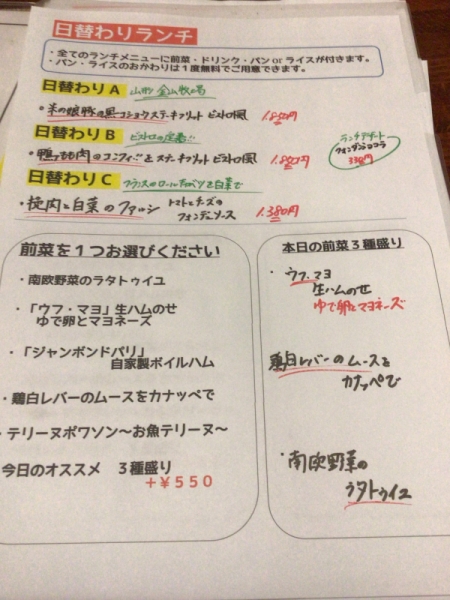 日替わりランチ
・全てのランチメニューに前菜・ドリンク・パン or ライスが付きます。
・パン・ライスのおかわりは1度無料でご用意できます。
日替わり A 山形 金山牧場
・米の娘豚の黒コショウステーキ フリット ビストロ風 1.850円
日替わり B ビストロの定番!!
・鴨もも肉のコンフィ ビストロ風 1.850円
ランチデザート
フォンダンショコラ
330円
日替わり C フランスのロールキャベツを白菜で
・挽肉と白菜のファルシ トマトとチーズの
フォンデュソース 1.380円
前菜を1つお選びください
・南欧野菜のラタトゥイユ
・「ウフ・マヨ」生ハムのせ
ゆで卵とマヨネーズ
・「ジャンボンドパリ」
自家製ボイルハム
・鶏白レバーのムースをカナッペで
・テリーヌポワソン～お魚テリーヌ～
今日のオススメ 3種盛り
+¥550
本日の前菜3種盛り
・ウフ・マヨ
生ハムのせ
ゆで卵とマヨネーズ
鶏白レバーのムースを
カナッペで
・南欧野菜の
ラタトゥイユ